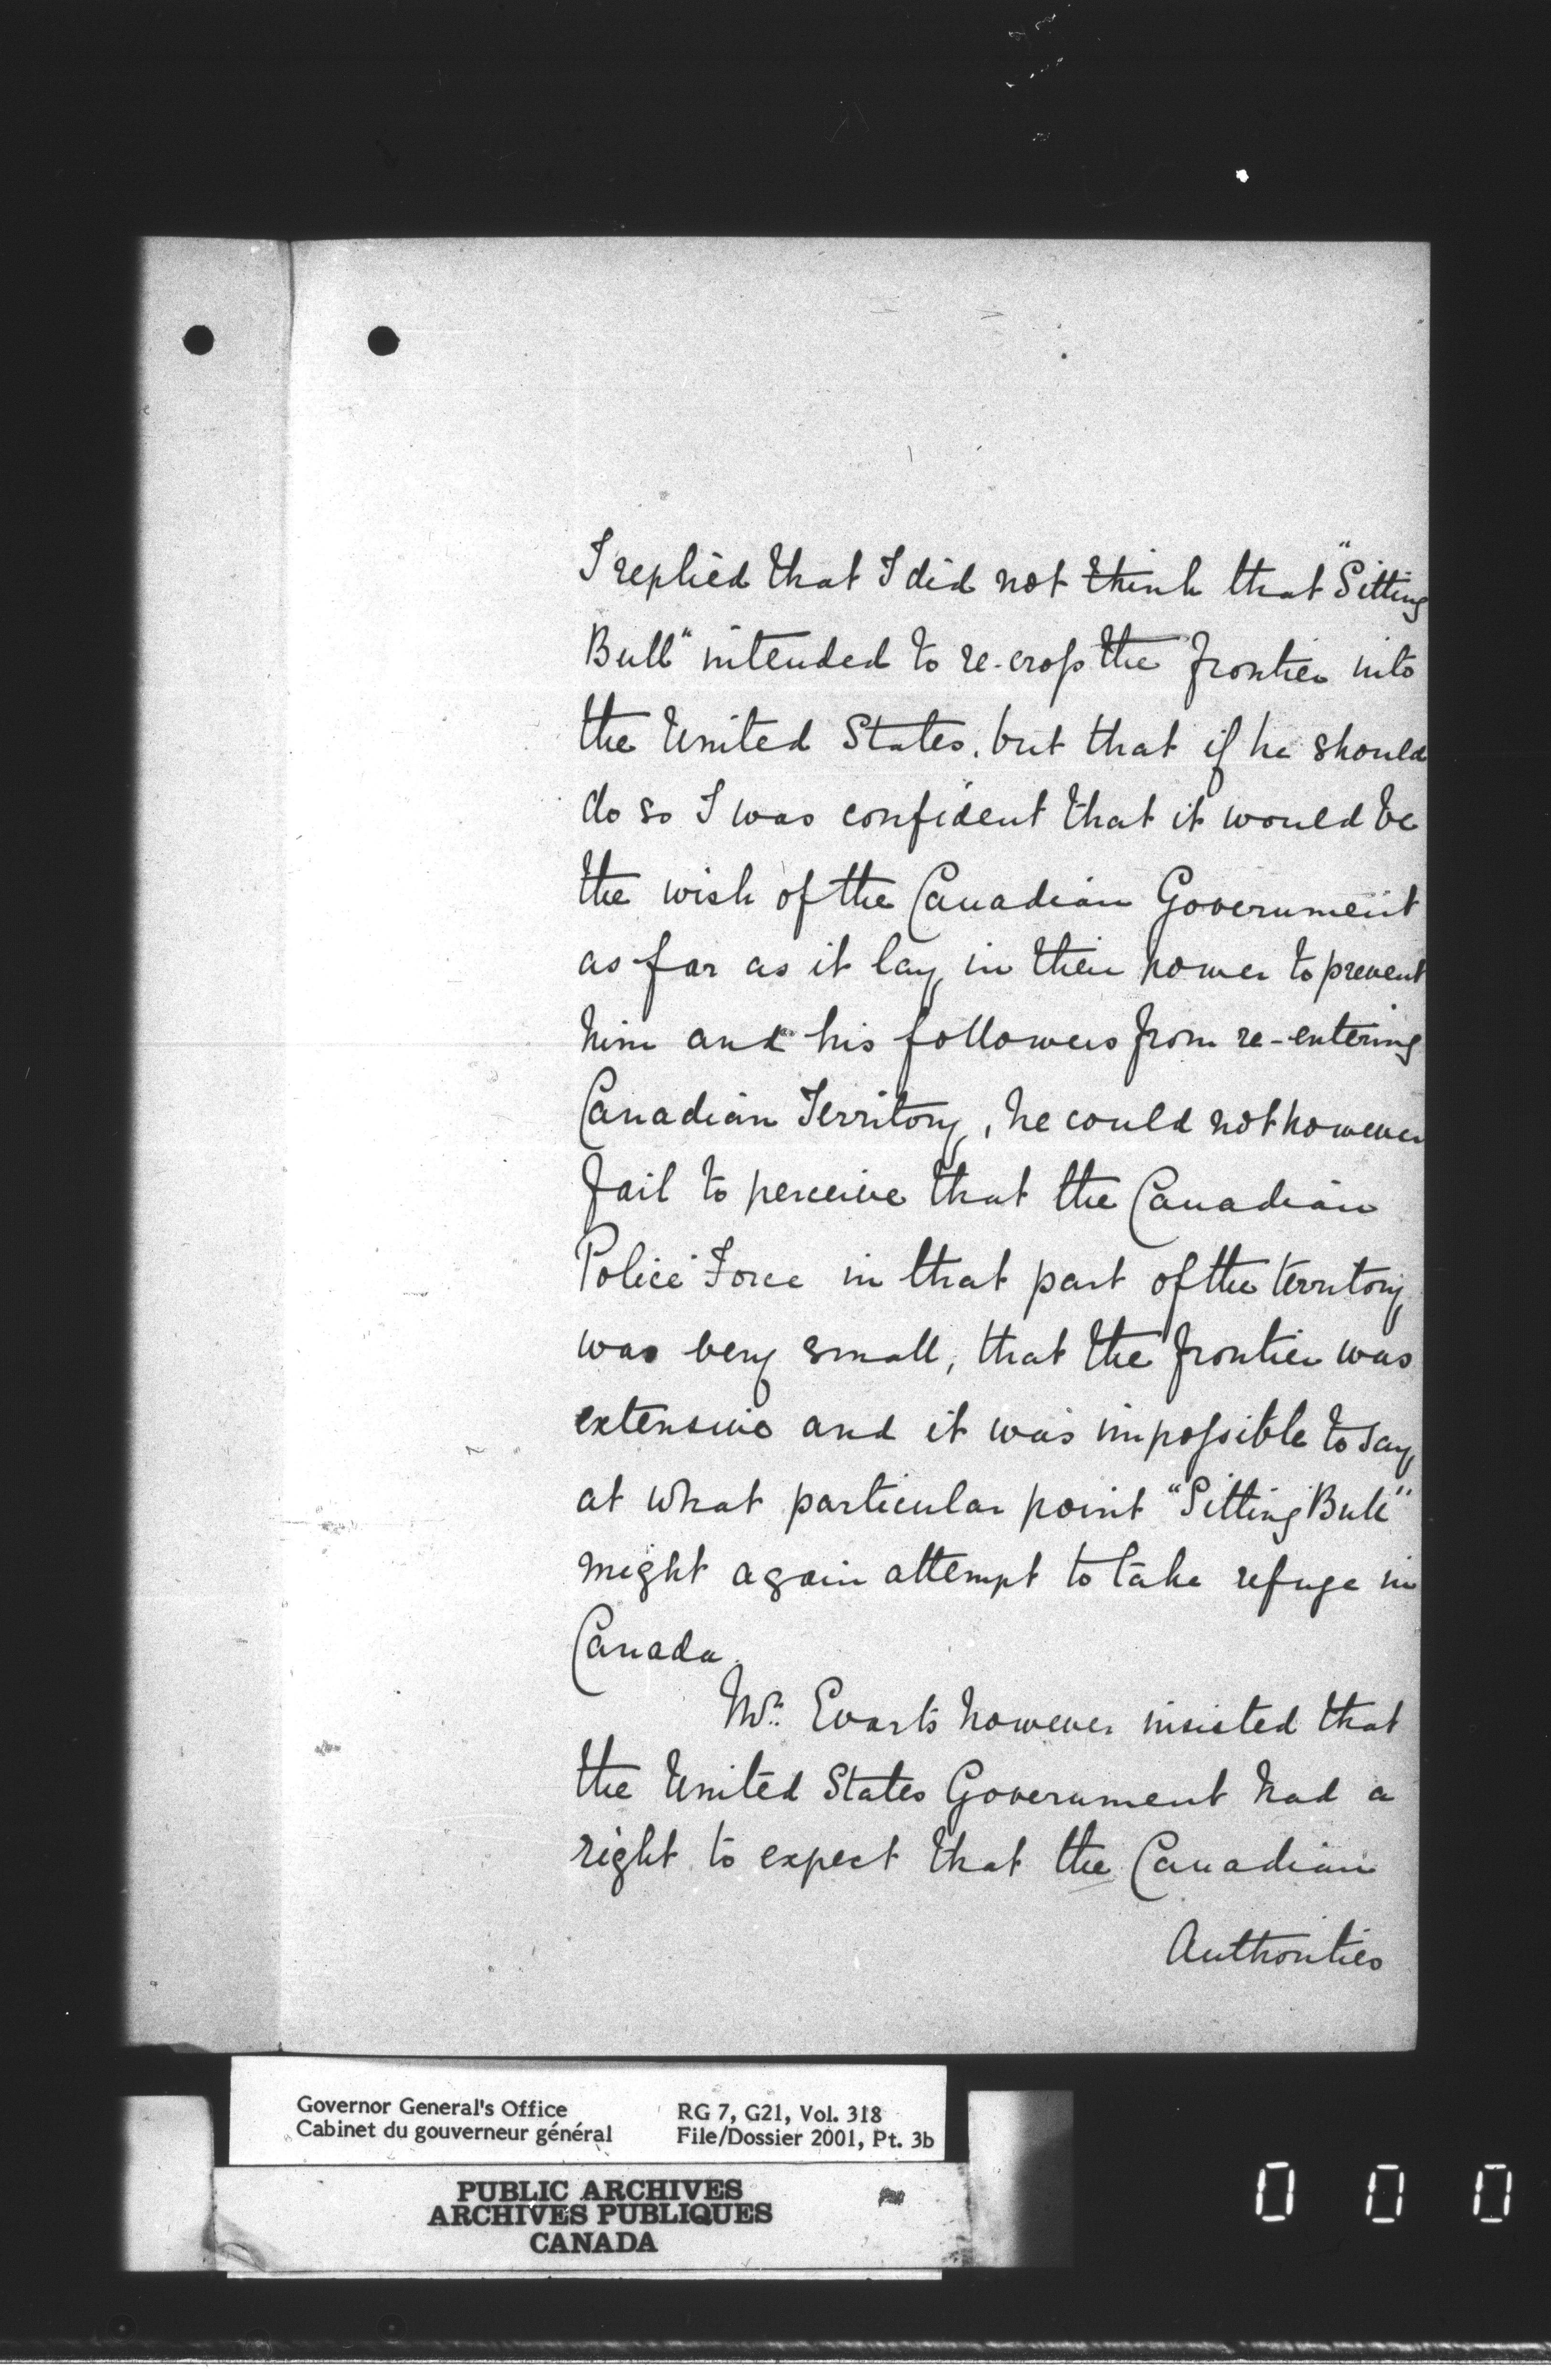 I replied that I did not think that "Sitting
Bull" intended to re-cross the frontier into
the United States, but that if he should
do so I was confident that it would be
the wish of the Canadian Government
as far as it lay in their power to prevent
him and his followers from re-entering
Canadian Territory, he could not however
fail to perceive that the Canadian
Police Force in that part of the territory
was very small, that the frontier was
extensive and it was impossible to say
at what particular point "Sitting Bull"
might again attempt to take refuge in
Canada.
Mr. Evarts however insisted that
the United States Government had a
right to expect that the Canadian
Authorities
Governor General's Office
Cabinet du gouverneur général
RG 7, G21, Vol. 318
File/Dossier 2001, Pt. 3b
PUBLIC ARCHIVES
ARCHIVES PUBLIQUES
CANADA
0 0 0